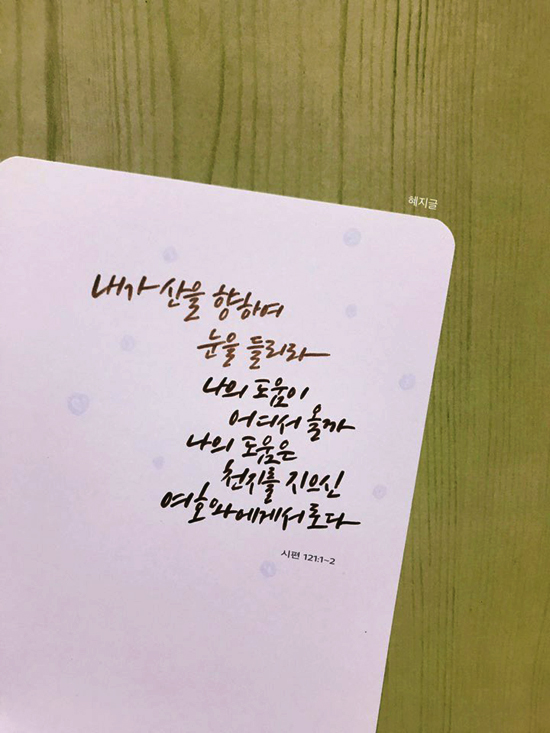 혜지글
내가 산을 향하여
눈을 들리라
나의 도움이
어디서 올까
나의 도움은
천지를 지으신
여호와에게서로다
시편 121:1~2